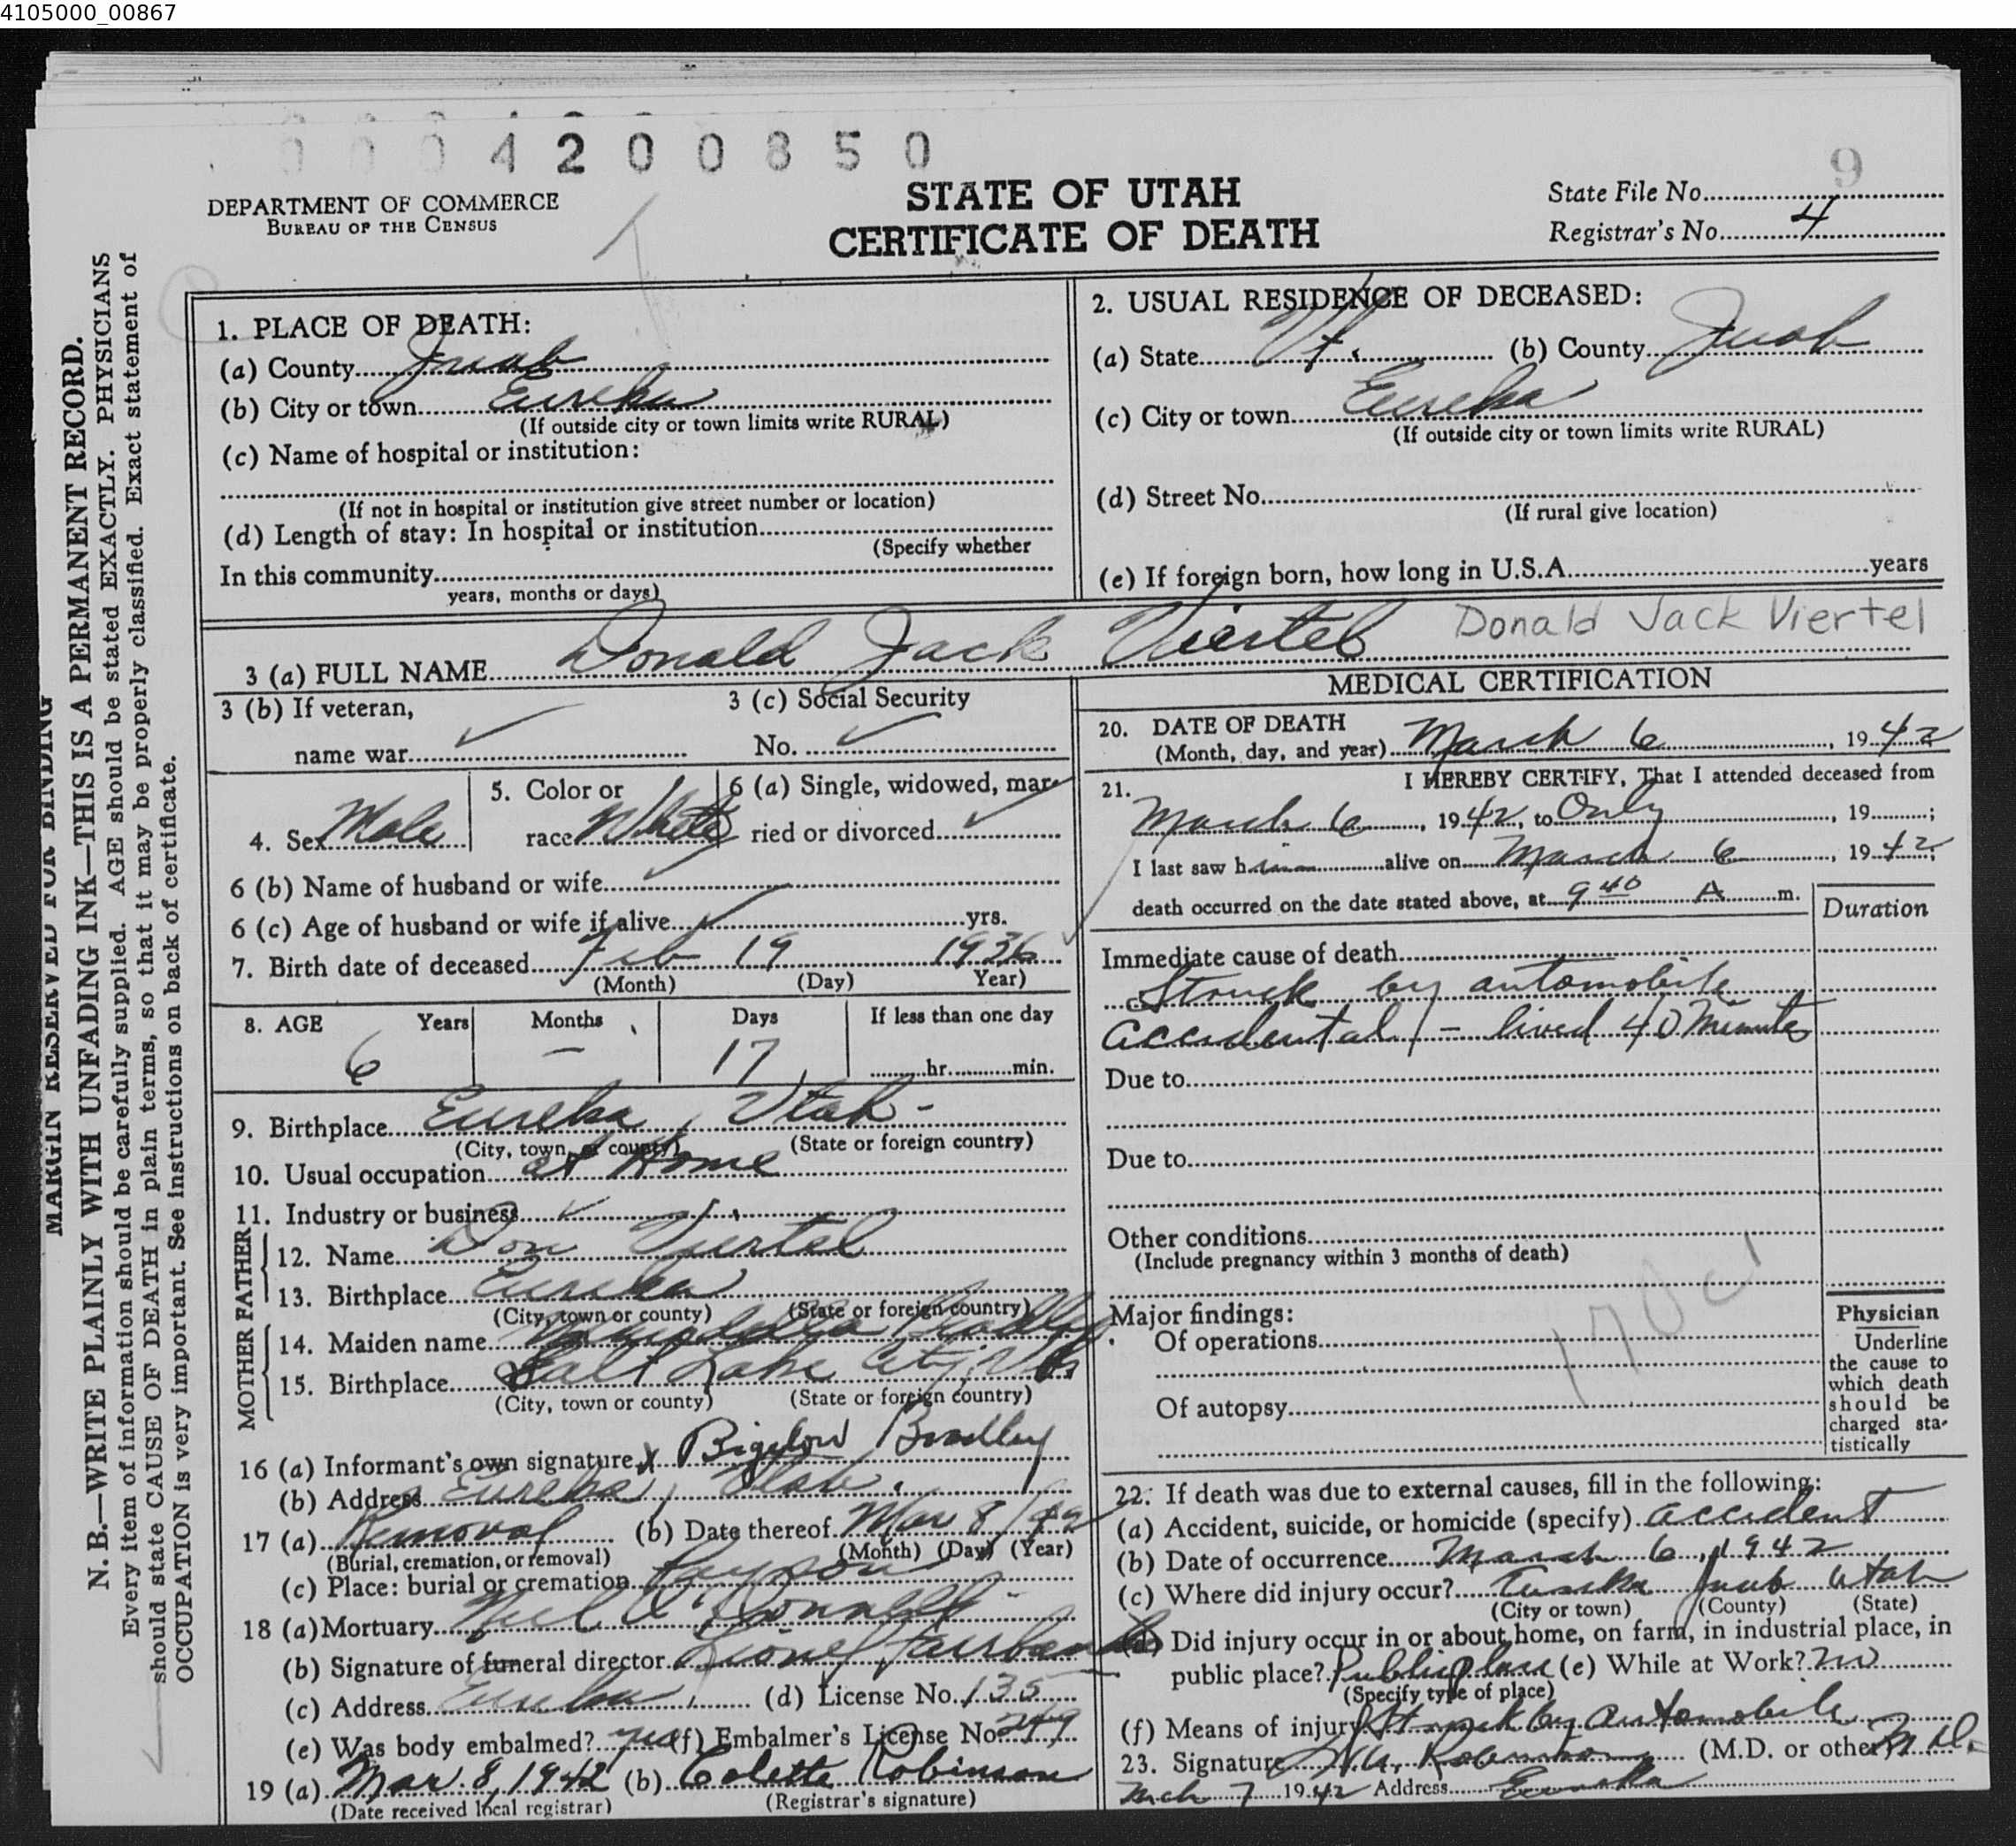 4105000_00867
0004200850
9
DEPARTMENT OF COMMERCE
BUREAU OF THE CENSUS
STATE OF UTAH
CERTIFICATE OF DEATH
State File No.
Registrar's No. 4
MARGIN RESERVED FOR BINDING
N. B.—WRITE PLAINLY WITH UNFADING INK—THIS IS A PERMANENT RECORD.
Every item of information should be carefully supplied. AGE should be stated EXACTLY. PHYSICIANS
should state CAUSE OF DEATH in plain terms, so that it may be properly classified. Exact statement of
OCCUPATION is very important. See instructions on back of certificate.
1. PLACE OF DEATH:
(a) County Juab
(b) City or town Eureka
(If outside city or town limits write RURAL)
(c) Name of hospital or institution:
(If not in hospital or institution give street number or location)
(d) Length of stay: In hospital or institution
(Specify whether
In this community
years, months or days)
2. USUAL RESIDENCE OF DECEASED:
(a) State Ut. (b) County Juab
(c) City or town Eureka
(If outside city or town limits write RURAL)
(d) Street No.
(If rural give location)
(e) If foreign born, how long in U.S.A. years
3 (a) FULL NAME Donald Jack Viertel Donald Jack Viertel
3 (b) If veteran,
name war
3 (c) Social Security
No.
4. Sex Male
5. Color or
race White
6 (a) Single, widowed, mar-
ried or divorced
6 (b) Name of husband or wife
6 (c) Age of husband or wife if alive yrs.
7. Birth date of deceased Feb 19 1936
(Month) (Day) Year)
8. AGE Years Months Days If less than one day
6 — 17 hr. min.
9. Birthplace Eureka, Utah -
(City, town, or county) (State or foreign country)
10. Usual occupation at Home
11. Industry or business
FATHER
12. Name Don Viertel
13. Birthplace Eureka
(City, town or county) (State or foreign country)
MOTHER
14. Maiden name Bradley
15. Birthplace Salt Lake City, Ut
(City, town or county) (State or foreign country)
16 (a) Informant's own signature X Bigelow Bradley
(b) Address Eureka, Utah.
17 (a) Removal (b) Date thereof Mar 8/42
(Burial, cremation, or removal) (Month) (Day) (Year)
(c) Place: burial or cremation Payson
18 (a) Mortuary O'Donnell
(b) Signature of funeral director Lionel Fairbanks
(c) Address Eureka, (d) License No. 135
(e) Was body embalmed? yes (f) Embalmer's License No. 249
19 (a) Mar. 8, 1942 (b) Colette Robinson
(Date received local registrar) (Registrar's signature)
MEDICAL CERTIFICATION
20. DATE OF DEATH
(Month, day, and year) March 6, 1942
21. I HEREBY CERTIFY, That I attended deceased from
March 6, 1942, to Only, 19 ;
I last saw him alive on March 6, 1942;
death occurred on the date stated above, at 9 40 A m.
Duration
Immediate cause of death
Struck by automobile
accidental - lived 40 Minutes
Due to
Due to
Other conditions
(Include pregnancy within 3 months of death)
170c
Major findings:
Of operations
Of autopsy
Physician
Underline
the cause to
which death
should be
charged sta-
tistically
22. If death was due to external causes, fill in the following:
(a) Accident, suicide, or homicide (specify) accident
(b) Date of occurrence March 6, 1942
(c) Where did injury occur? Eureka Juab Utah
(City or town) (County) (State)
(d) Did injury occur in or about home, on farm, in industrial place, in
public place? Public place (e) While at Work? no
(Specify type of place)
(f) Means of injury Struck by Automobile
23. Signature Robinson (M.D. or other) M.D.
Mch 7 1942 Address Eureka